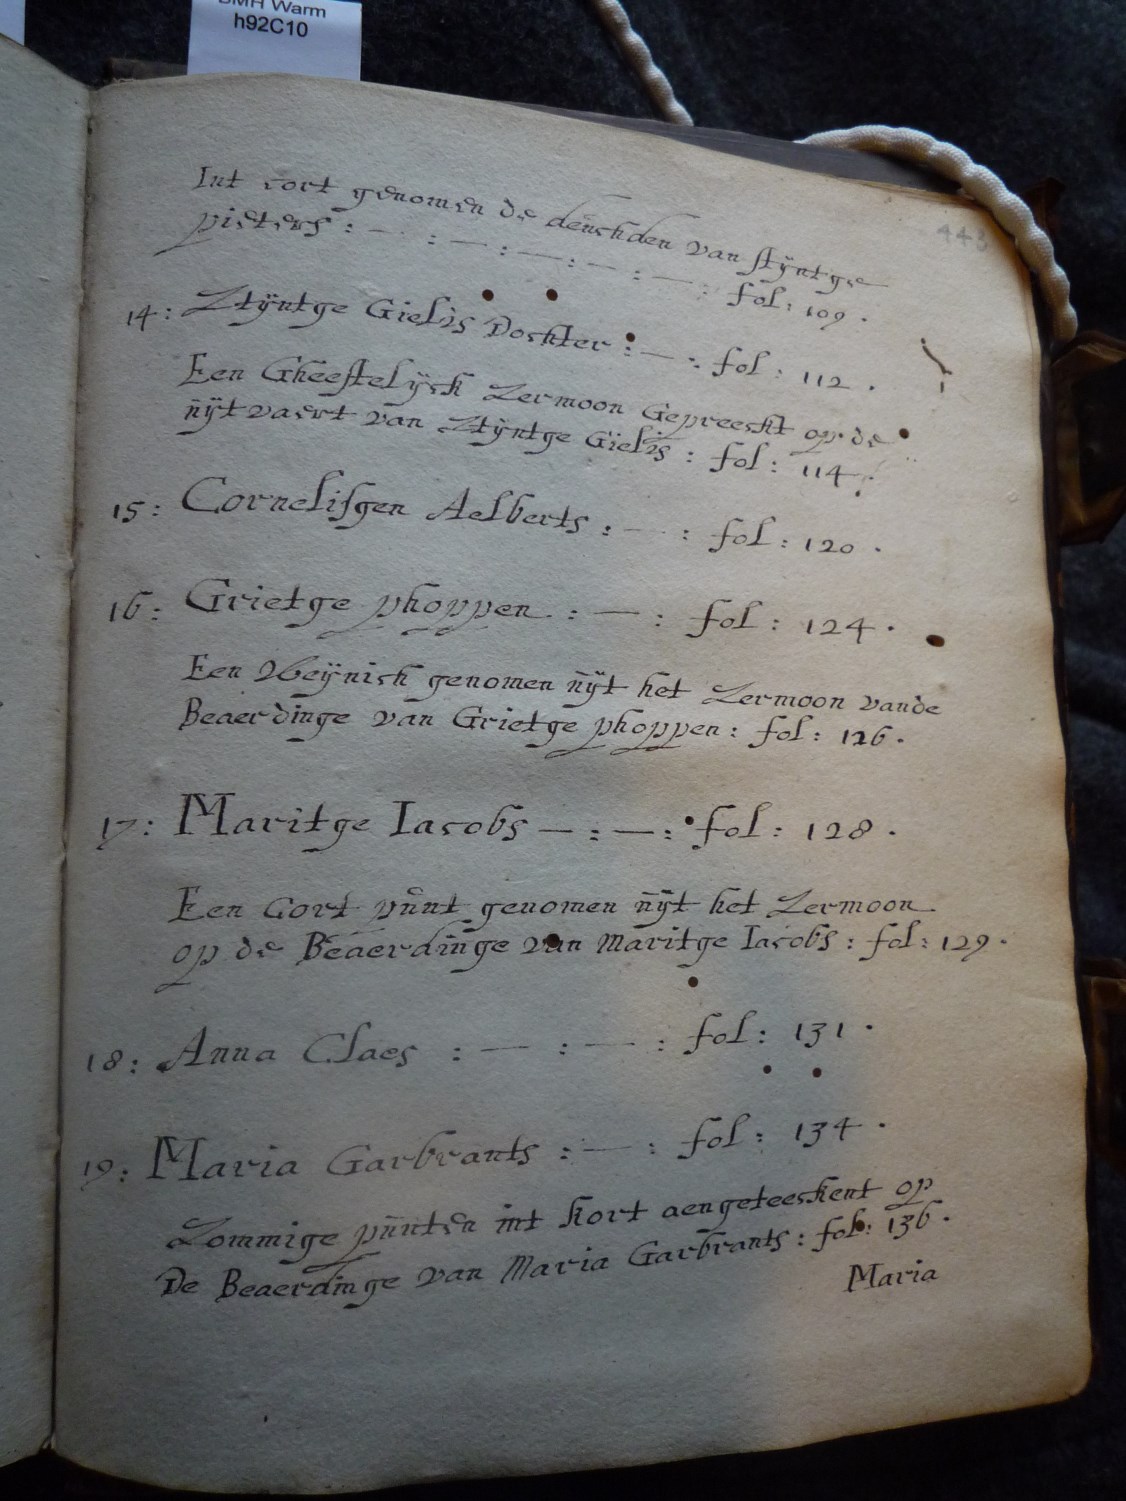 BMH Warm
h92C10
443
Int cort genomen de deuchden van stÿntge
pieters : — : — : — : — : — : fol : 109 .
14 : Stÿntge Gielis Dochter : — : fol : 112 .
Een Gheestelÿck Sermoon Gepreeckt op de
uÿtvaert van Stÿntge Gielis : fol : 114 :
15 : Cornelisgen Aelberts : — : fol : 120 .
16 : Grietge phoppen : — : fol : 124 .
Een Weÿnich genomen uÿt het Sermoon vande
Beaerdinge van Grietge phoppen : fol : 126 .
17 : Maritge Iacobs — : — : fol : 128 .
Een Cort punt genomen uÿt het Sermoon
op de Beaerdinge van Maritge Iacobs : fol : 129 .
18 : Anna Claes : — : — : fol : 131 .
19 : Maria Garbrants : — : fol : 134 .
Sommige punten int kort aengeteeckent op
De Beaerdinge van Maria Garbrants : fol : 136 .
Maria